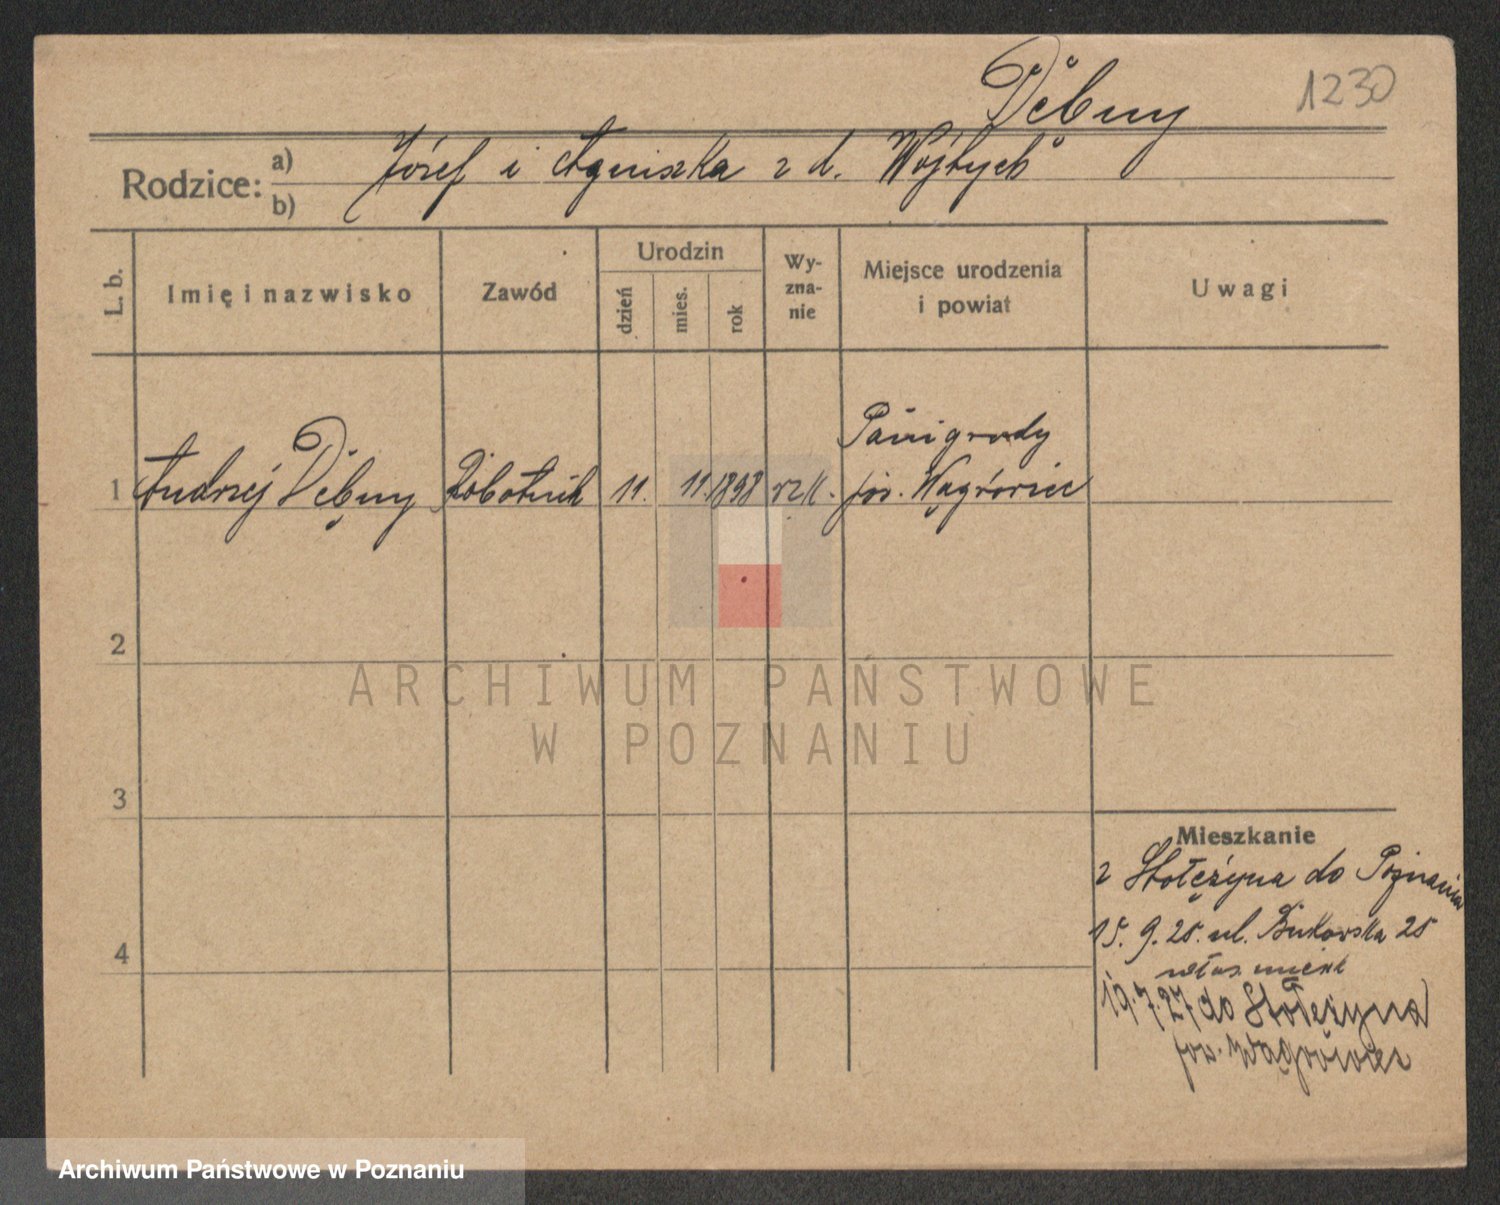 Dębny
1230
Rodzice:
a) Józef i Agniszka z d. Wójtych
b)
L. b.
Imię i nazwisko
Zawód
Urodzin
dzień
mies.
rok
Wy-
zna-
nie
Miejsce urodzenia
i powiat
Uwagi
Panigrody
1 Andrzej Dębny Robotnik 11. 11. 1898 rzk. pow. Wągrówiec
2
3
4
ARCHIWUM PAŃSTWOWE
W POZNANIU
Mieszkanie
z Stołężyna do Poznania
15. 9. 25. ul. Bukowska 25
własn. mieszk
19.7.27 do Stołeżyna
pow. Wągrówiec
Archiwum Państwowe w Poznaniu